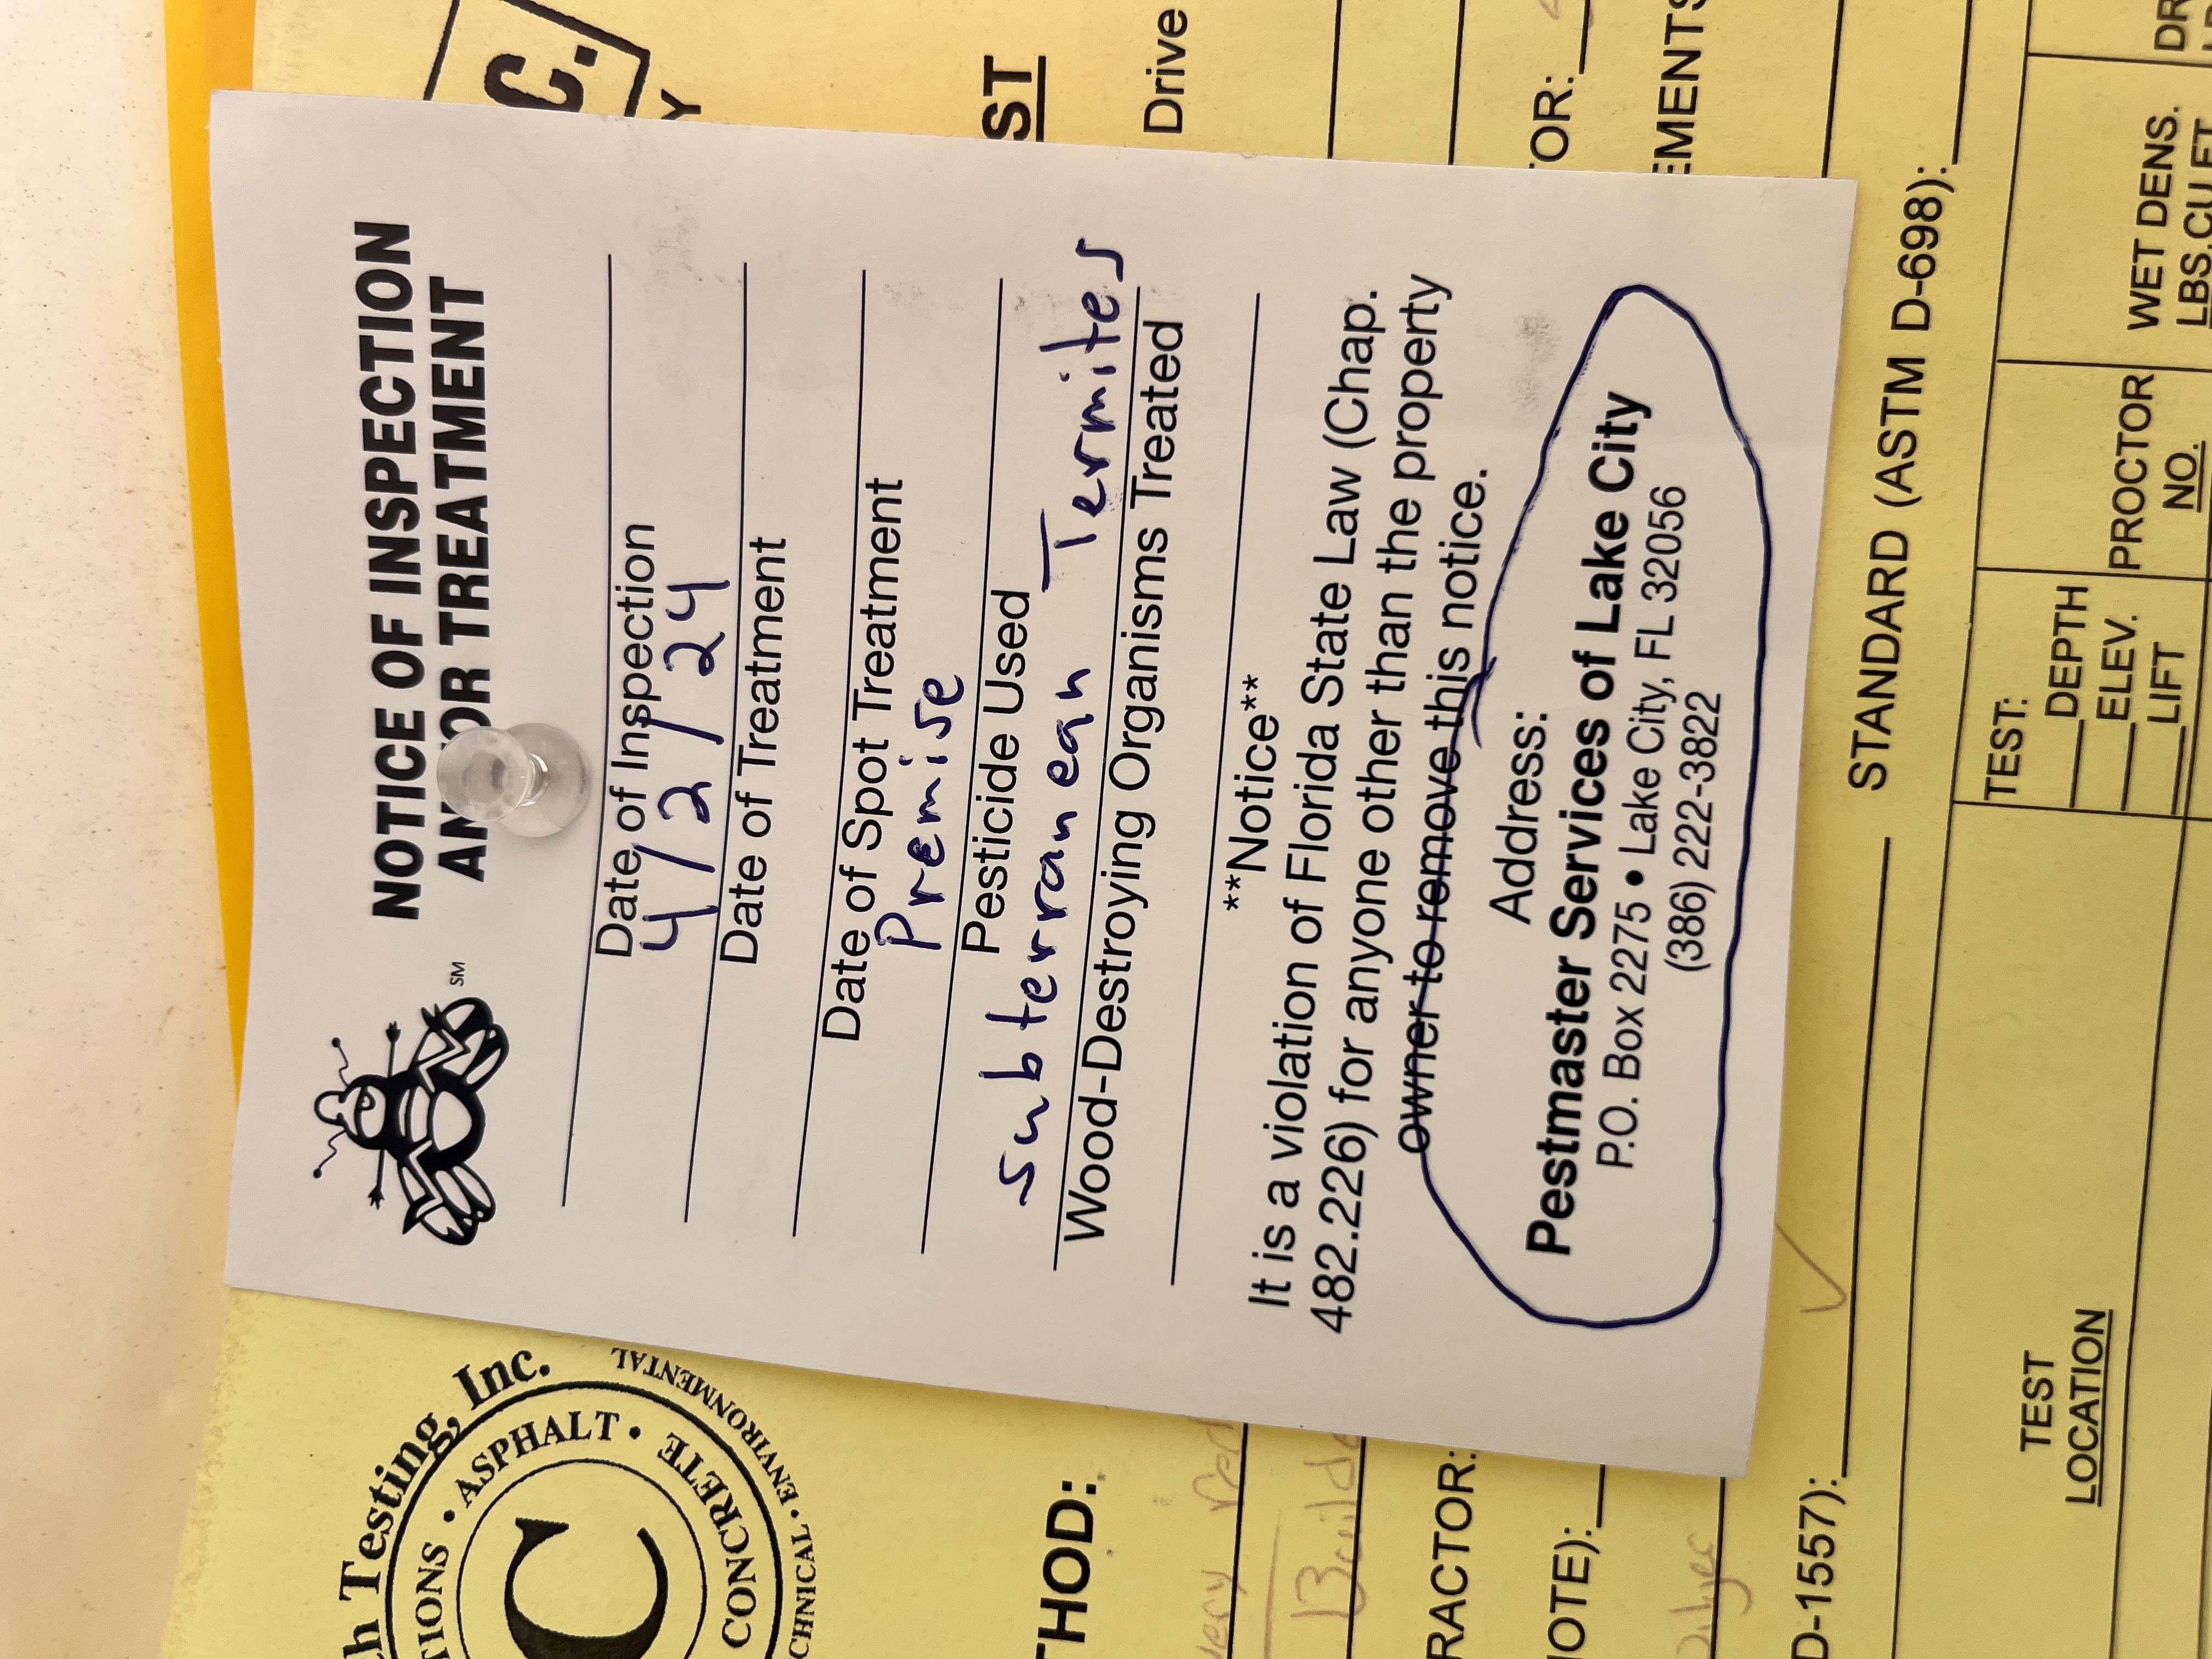 NOTICE OF INSPECTION
AND/OR TREATMENT
SM
Date of Inspection
4/2/24
Date of Treatment
Date of Spot Treatment
Premise
Pesticide Used
Subterranean Termites
Wood-Destroying Organisms Treated
**Notice**
It is a violation of Florida State Law (Chap.
482.226) for anyone other than the property
owner to remove this notice.
Address:
Pestmaster Services of Lake City
P.O. Box 2275 • Lake City, FL 32056
(386) 222-3822
Testing, Inc.
ASPHALT • CONCRETE
ENVIRONMENTAL
C
Drive
D-1557):
STANDARD (ASTM D-698):
TEST
LOCATION
TEST:
DEPTH
ELEV.
LIFT
PROCTOR
NO.
WET DENS.
LBS.CU.FT.